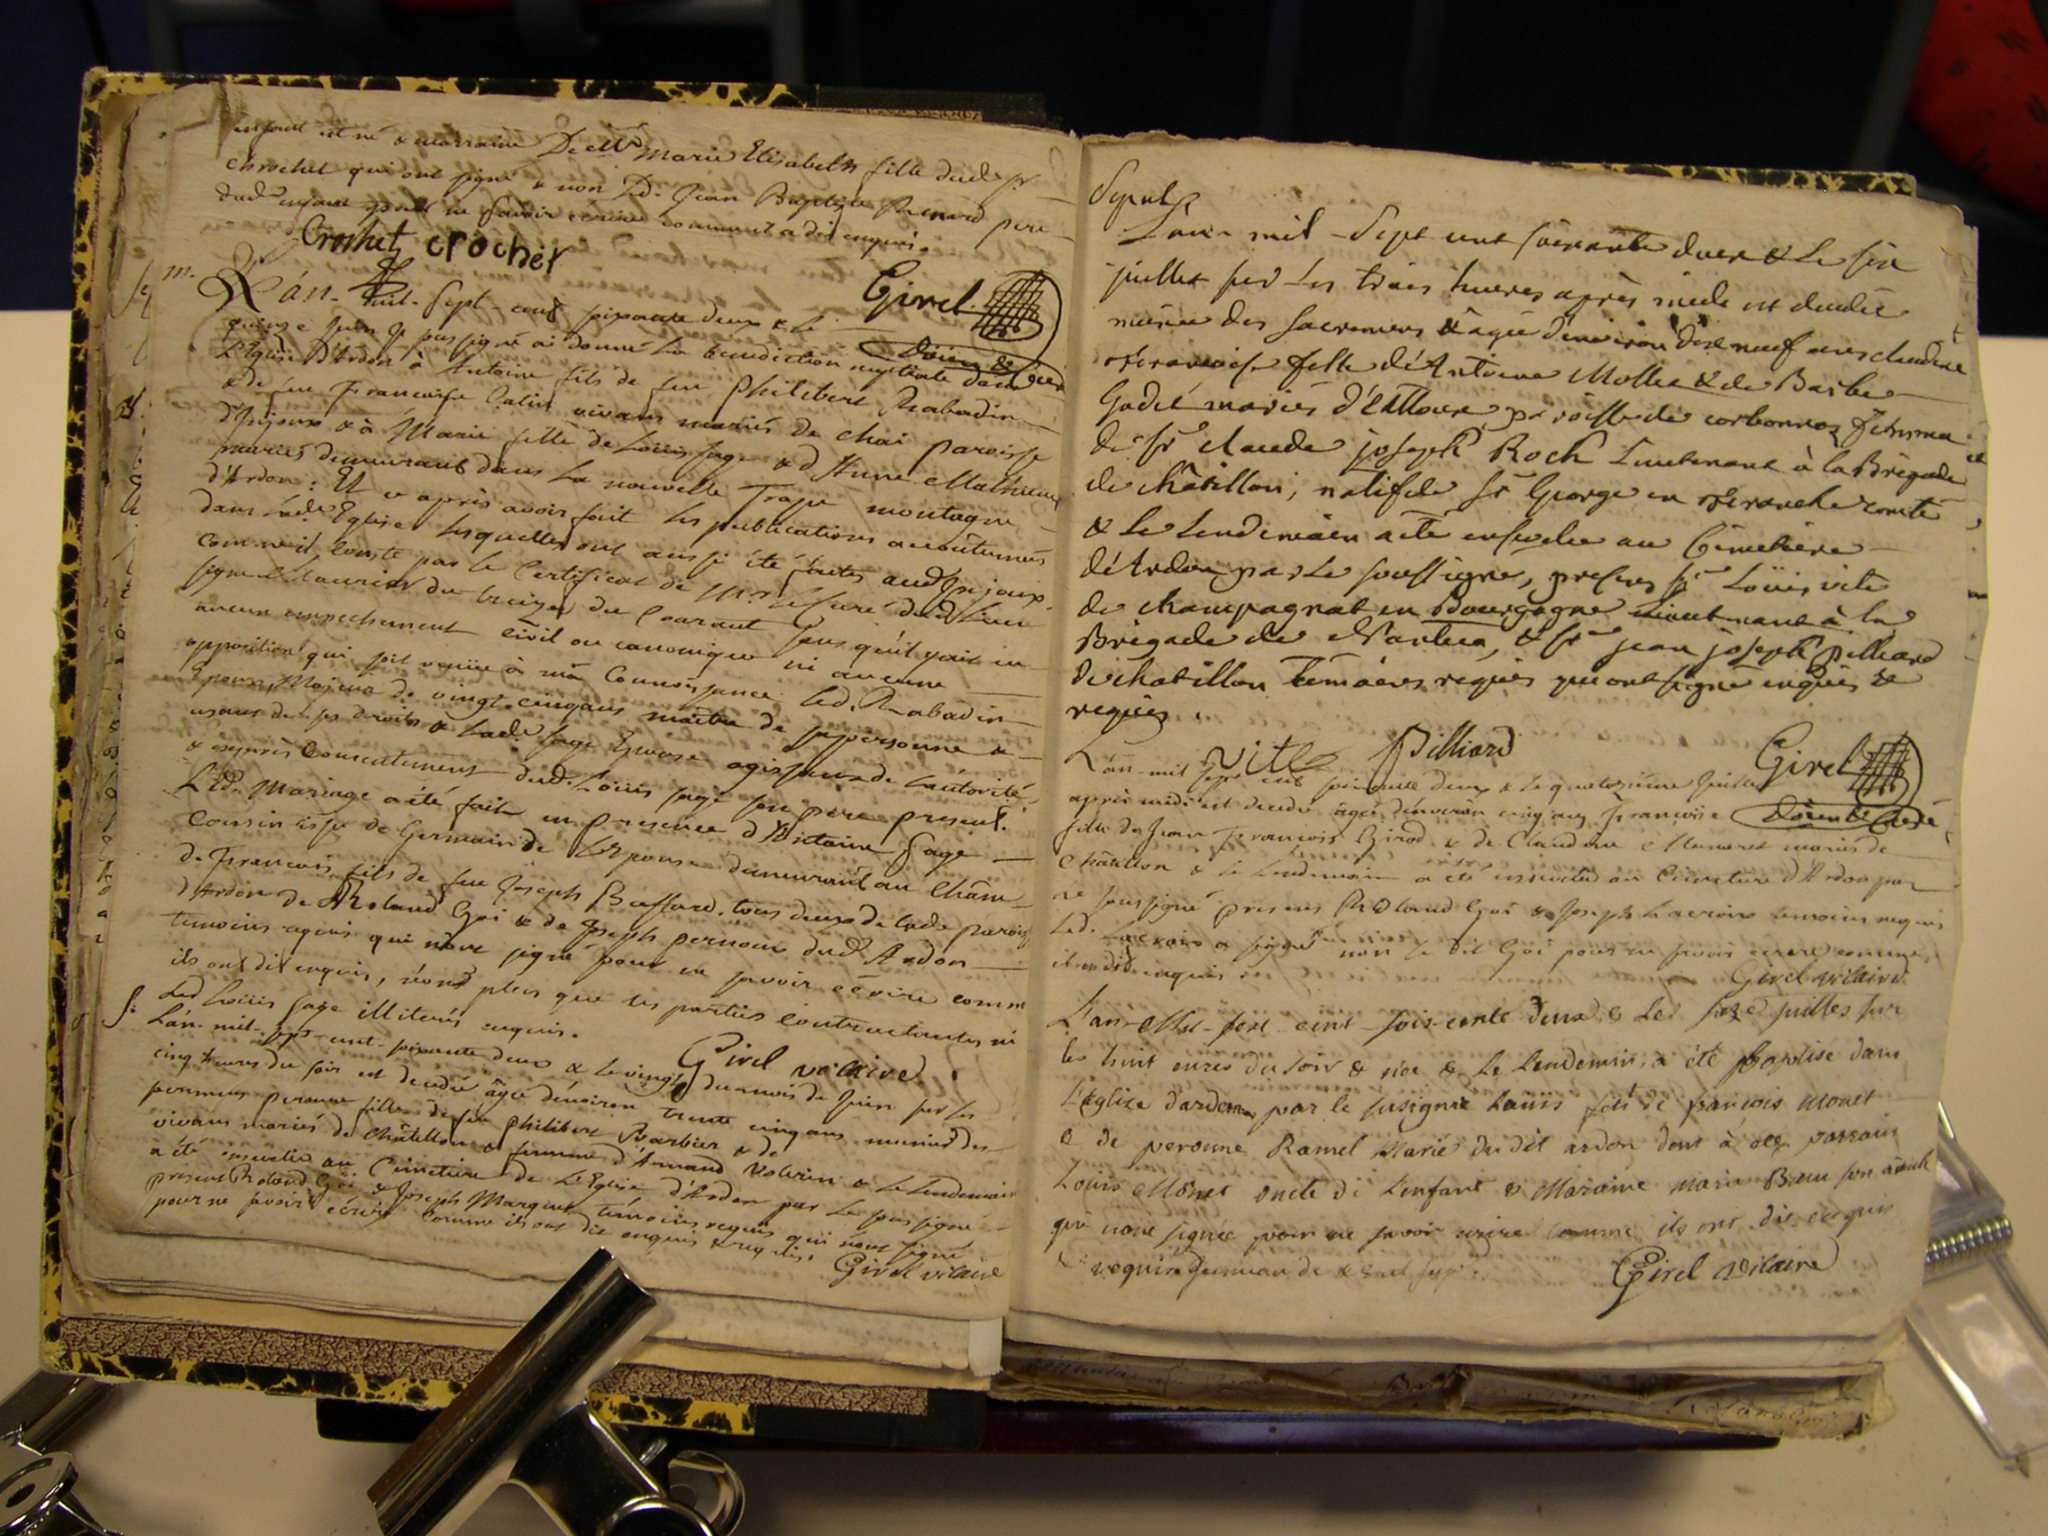 enfant est né & marraine De elle Marie Elisabeth fille dud. sr
Chrochet qui ont signé & non Led. Jean Baptiste Renard pere
dud. enfant pour ne savoir écrire comme il a dit enquis.
Crochet crochet
Girel
Doien & Curé
m.
L'án-mil-sept-cent soixante deux & le
quinze juin je soussigné ai donné La benediction nuptiale dans
L'Eglise D'Ardon à Antoine fils de feu Philibert Rabadin
& de feu Françoise vivans mariés de Chai paroisse
d'Injoux & à Marie fille de Loüis sage & d'Anne Mathieu
mariés demeurants dans La nouvelle Trape montagne
d'Ardon: Et ce après avoir fait les publications accoûtumées
dans Lade. Eglise lesquelles ont aussi été faites aud. Injoux
comme il conste par le Certificat de Mr. le Curé dud. Lieu
signé du treize du Courant sans qu'il y ait eu
aucun empechement civil ou canonique ni aucune
opposition qui soit venüe à ma Connoissance. Led. Rabadin
Epoux Majeur de vingt-cinq ans maître de sa personne &
usant de ses Droits & Lade. sage Epouse agissant de L'autorité
& exprès Consentement dud. Loüis sage son pere present.
Led. Mariage a été fait en presence d'Antoine Sage
Cousin de Germain de L'Epouse demeurant au
de François fils de feu Joseph Buffard, tous deux de lade. paroisse
d'Ardon de Roland Goi & de Joseph pernoux dud. Ardon
temoins requis qui n'ont signé pour ne savoir écrire comme
ils ont dit enquis, non plus que les parties contractantes ni
Led. Loüis sage illiterés enquis.
Girel vicaire
S.
L'án-mil-sept-cent-soixante deux & le vingt du mois de Juin sur les
cinq heures du soir est decedée âgée d'énviron trente cinq ans munie des
peronne fille de feu Philibert Barbier & de
vivans mariés de Châtillon & femme d'Armand Volerin & Le Lendemain
a été ensevelie au Cimetiere de L'Eglise d'Ardon par Le soussigné
présens Roland Goi & Joseph Marquet témoins requis qui n'ont signé
pour ne savoir écrire comme ils ont dit enquis & requis.
Girel vicaire
Sepult.
L'an-mil-Sept cent soixante deux & le six
juillet sur Les trois heures après midi est decedée
munie des sacremens & agée d'environ dixneuf ans claudine
francoise fille d'Antoine Mollie & de Barbe
Godet mariés d'Ettoux paroisse de corbonnoz femme
de Sr. claude joseph Roch Lieutenant à la Brigade
de châtillon, natif de St. George en franche comté
& le lendemain a été ensevelie au Cimetiere
d'Ardon par le soussigné, presens sr. Loüis vite
de champagnat en Bourgogne Lieutenant à la
Brigade de Nantua, & sr. jean joseph pilliard
de chatillon témoins requis qui ont signé enquis &
requis.
vite pilliard
Girel
Doien & Curé
L'án-mil sept cent soixante deux & le quatorzième Juillet
après midi est decedée âgée d'énviron cinq ans Françoise
fille de Jean François Girod & de Claudine mariés de
Châtillon & le Lendemain a été ensevelie au Cimetiere d'Ardon par
ne soussigné présens Roland Goi & Joseph Lacroix temoins requis
Led. Lacroix a signé non le dit Goi pour ne savoir écrire comme
il a dit enquis
Girel vicaire
L'an-Mil-sept-cent-soixante deux & Le seize juillet sur
les huit eures du soir & né & Le Lendemain a été Baptisé dans
L'église dardon par le susigné Louis fils de françois Monet
& de peronne Ramel Mariés du dit ardon dont à été parrain
Louis Monet oncle de L'enfant & Maraine marie son aïeule
qui n'ont signée pour ne savoir ecrire comme ils ont dit enquis
& requis
Girel vicaire